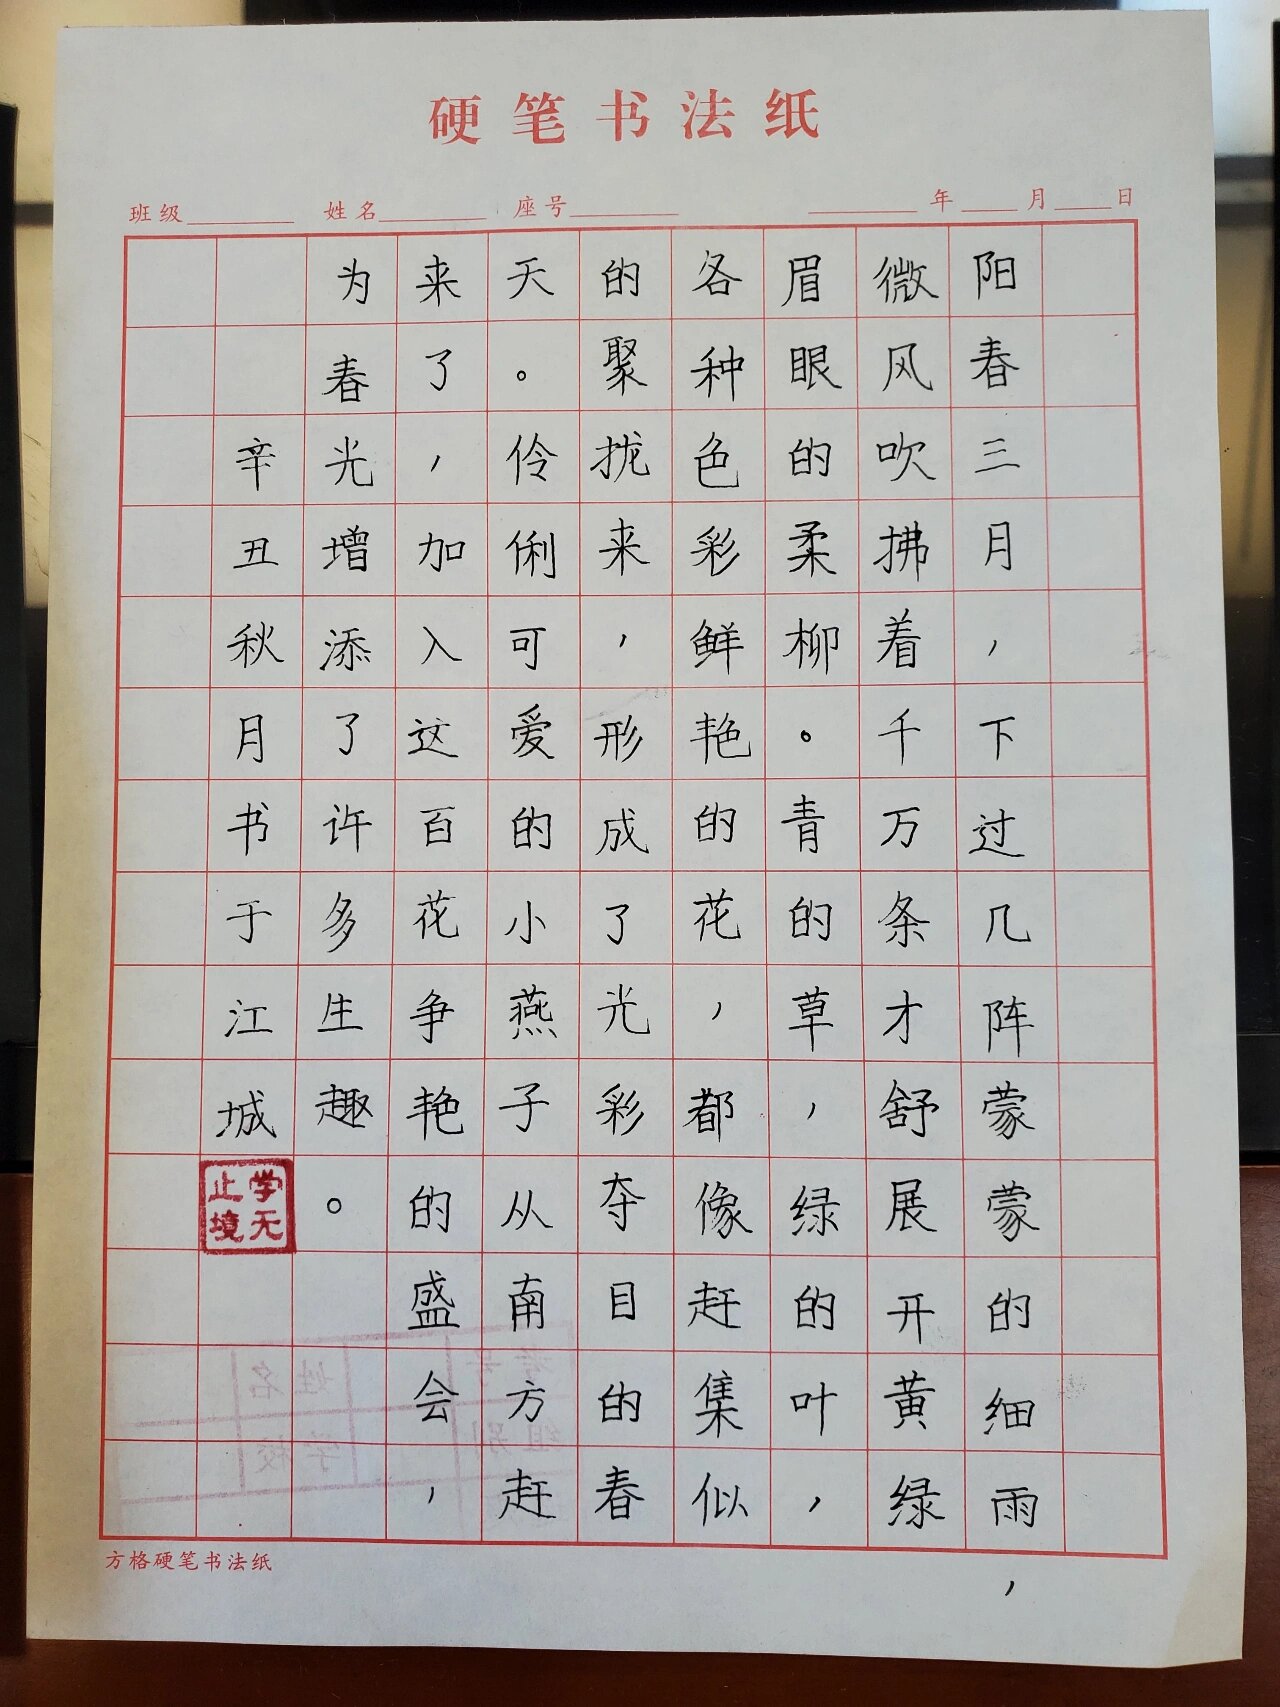 硬笔书法纸
班级 姓名 座号 年 月 日
阳春三月，下过几阵蒙蒙的细雨，
微风吹拂着千万条才舒展开黄绿
眉眼的柔柳。青的草，绿的叶，
各种色彩鲜艳的花，都像赶集似
的聚拢来，形成了光彩夺目的春
天。伶俐可爱的小燕子从南方赶
来了，加入这百花争艳的盛会，
为春光增添了许多生趣。
辛丑秋月书于江城
学无止境
方格硬笔书法纸
考号
姓名
组别
学校